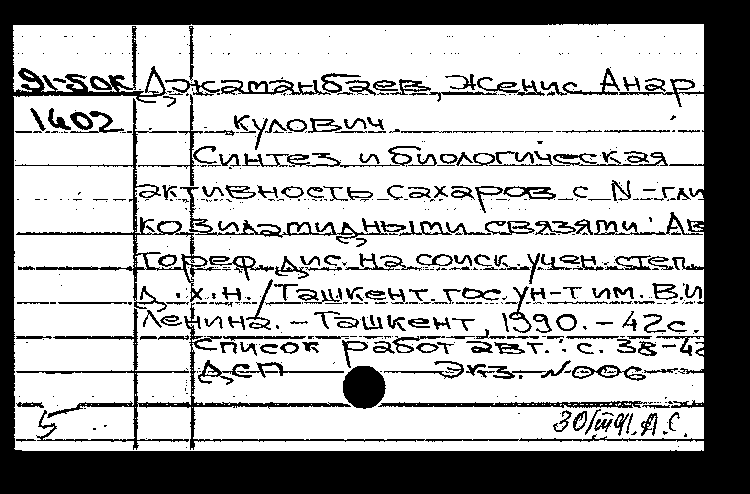 91-50К Джаманбаев, Женис Анар
1402 кулович.
Синтез и биологическая
активность сахаров с N-гли
козиламидными связями: Ав
тореф. дис. на соиск. учен. степ.
д.х.н. / Ташкент. гос. ун-т им. В.И
Ленина. - Ташкент, 1990. - 42с.
Список работ авт.: с. 38-42
ДСП Экз. №006
5 30/III91. А.С.